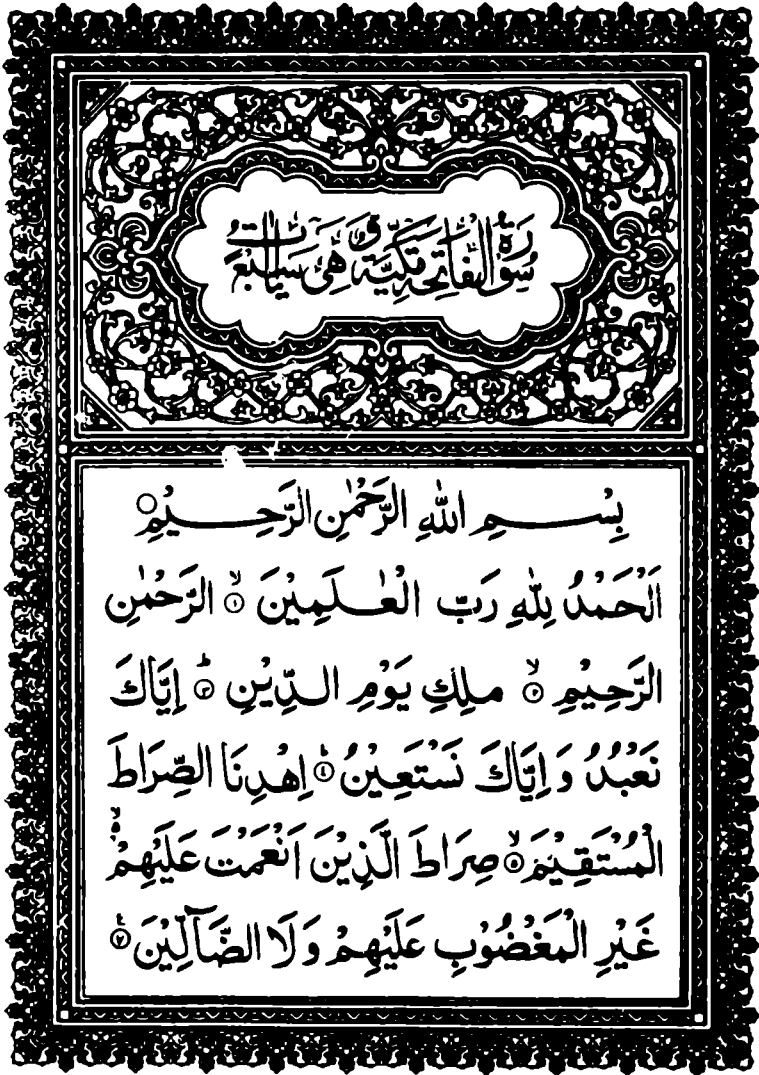 سُوْرَةُ الْفَاتِحَةِ مَكِّيَّةٌ وَّهِىَ سَبْعُ اٰيَاتٍ
بِسْمِ اللّٰهِ الرَّحْمٰنِ الرَّحِيْمِ ۝
اَلْحَمْدُ لِلّٰهِ رَبِّ الْعٰلَمِيْنَ ۙ﴿۱﴾ الرَّحْمٰنِ
الرَّحِيْمِ ۙ﴿۲﴾ مٰلِكِ يَوْمِ الدِّيْنِ ؕ﴿۳﴾ اِيَّاكَ
نَعْبُدُ وَ اِيَّاكَ نَسْتَعِيْنُ ؕ﴿٤﴾ اِهْدِنَا الصِّرَاطَ
الْمُسْتَقِيْمَ ۙ﴿۵﴾ صِرَاطَ الَّذِيْنَ اَنْعَمْتَ عَلَيْهِمْ ۙ۵
غَيْرِ الْمَغْضُوْبِ عَلَيْهِمْ وَ لَا الضَّآلِّيْنَ ﴿۷﴾